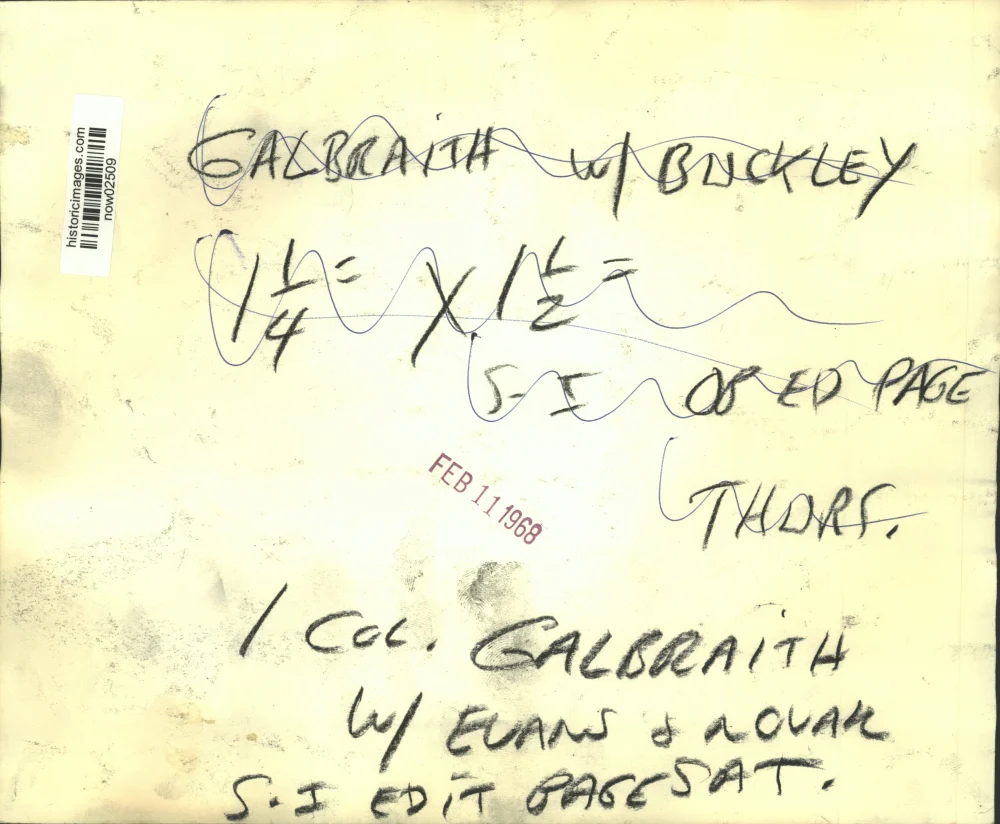 historicimages.com
now02509
GALBRAITH w/ BUCKLEY
1 1/4 = X 1 1/2 =
S-I OP ED PAGE
THURS.
FEB 11 1968
1 COL. GALBRAITH
W/ EVANS & NOVAK
S.I EDIT PAGE SAT.